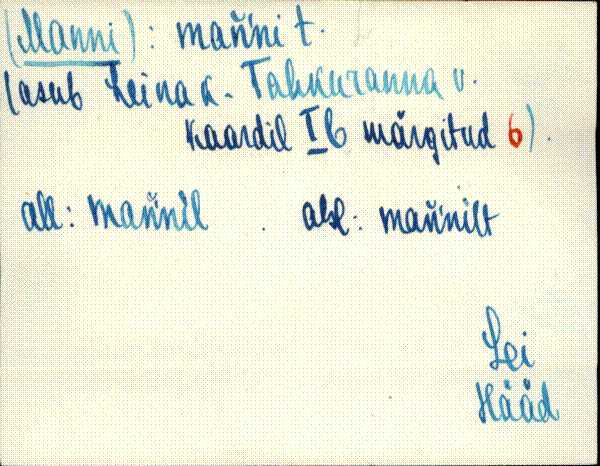 (Manni): mańńi t.
(asub Leina k. Tahkuranna v.
kaardil I b märgitud 6).
all: mańńil . abl: mańńilt
Lei
Hääd